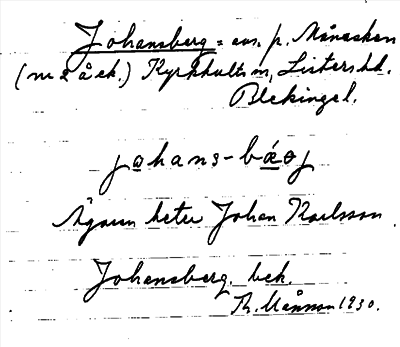 Johansberg = avs. p. Månaskan
(nr 2 å ek.) Kyrkhults sn, Listers hd.
Blekinge l.
johans-bærj
Ägaren heter Johan Karlsson.
Johansberg. bek.
Th. Månsson 1930.